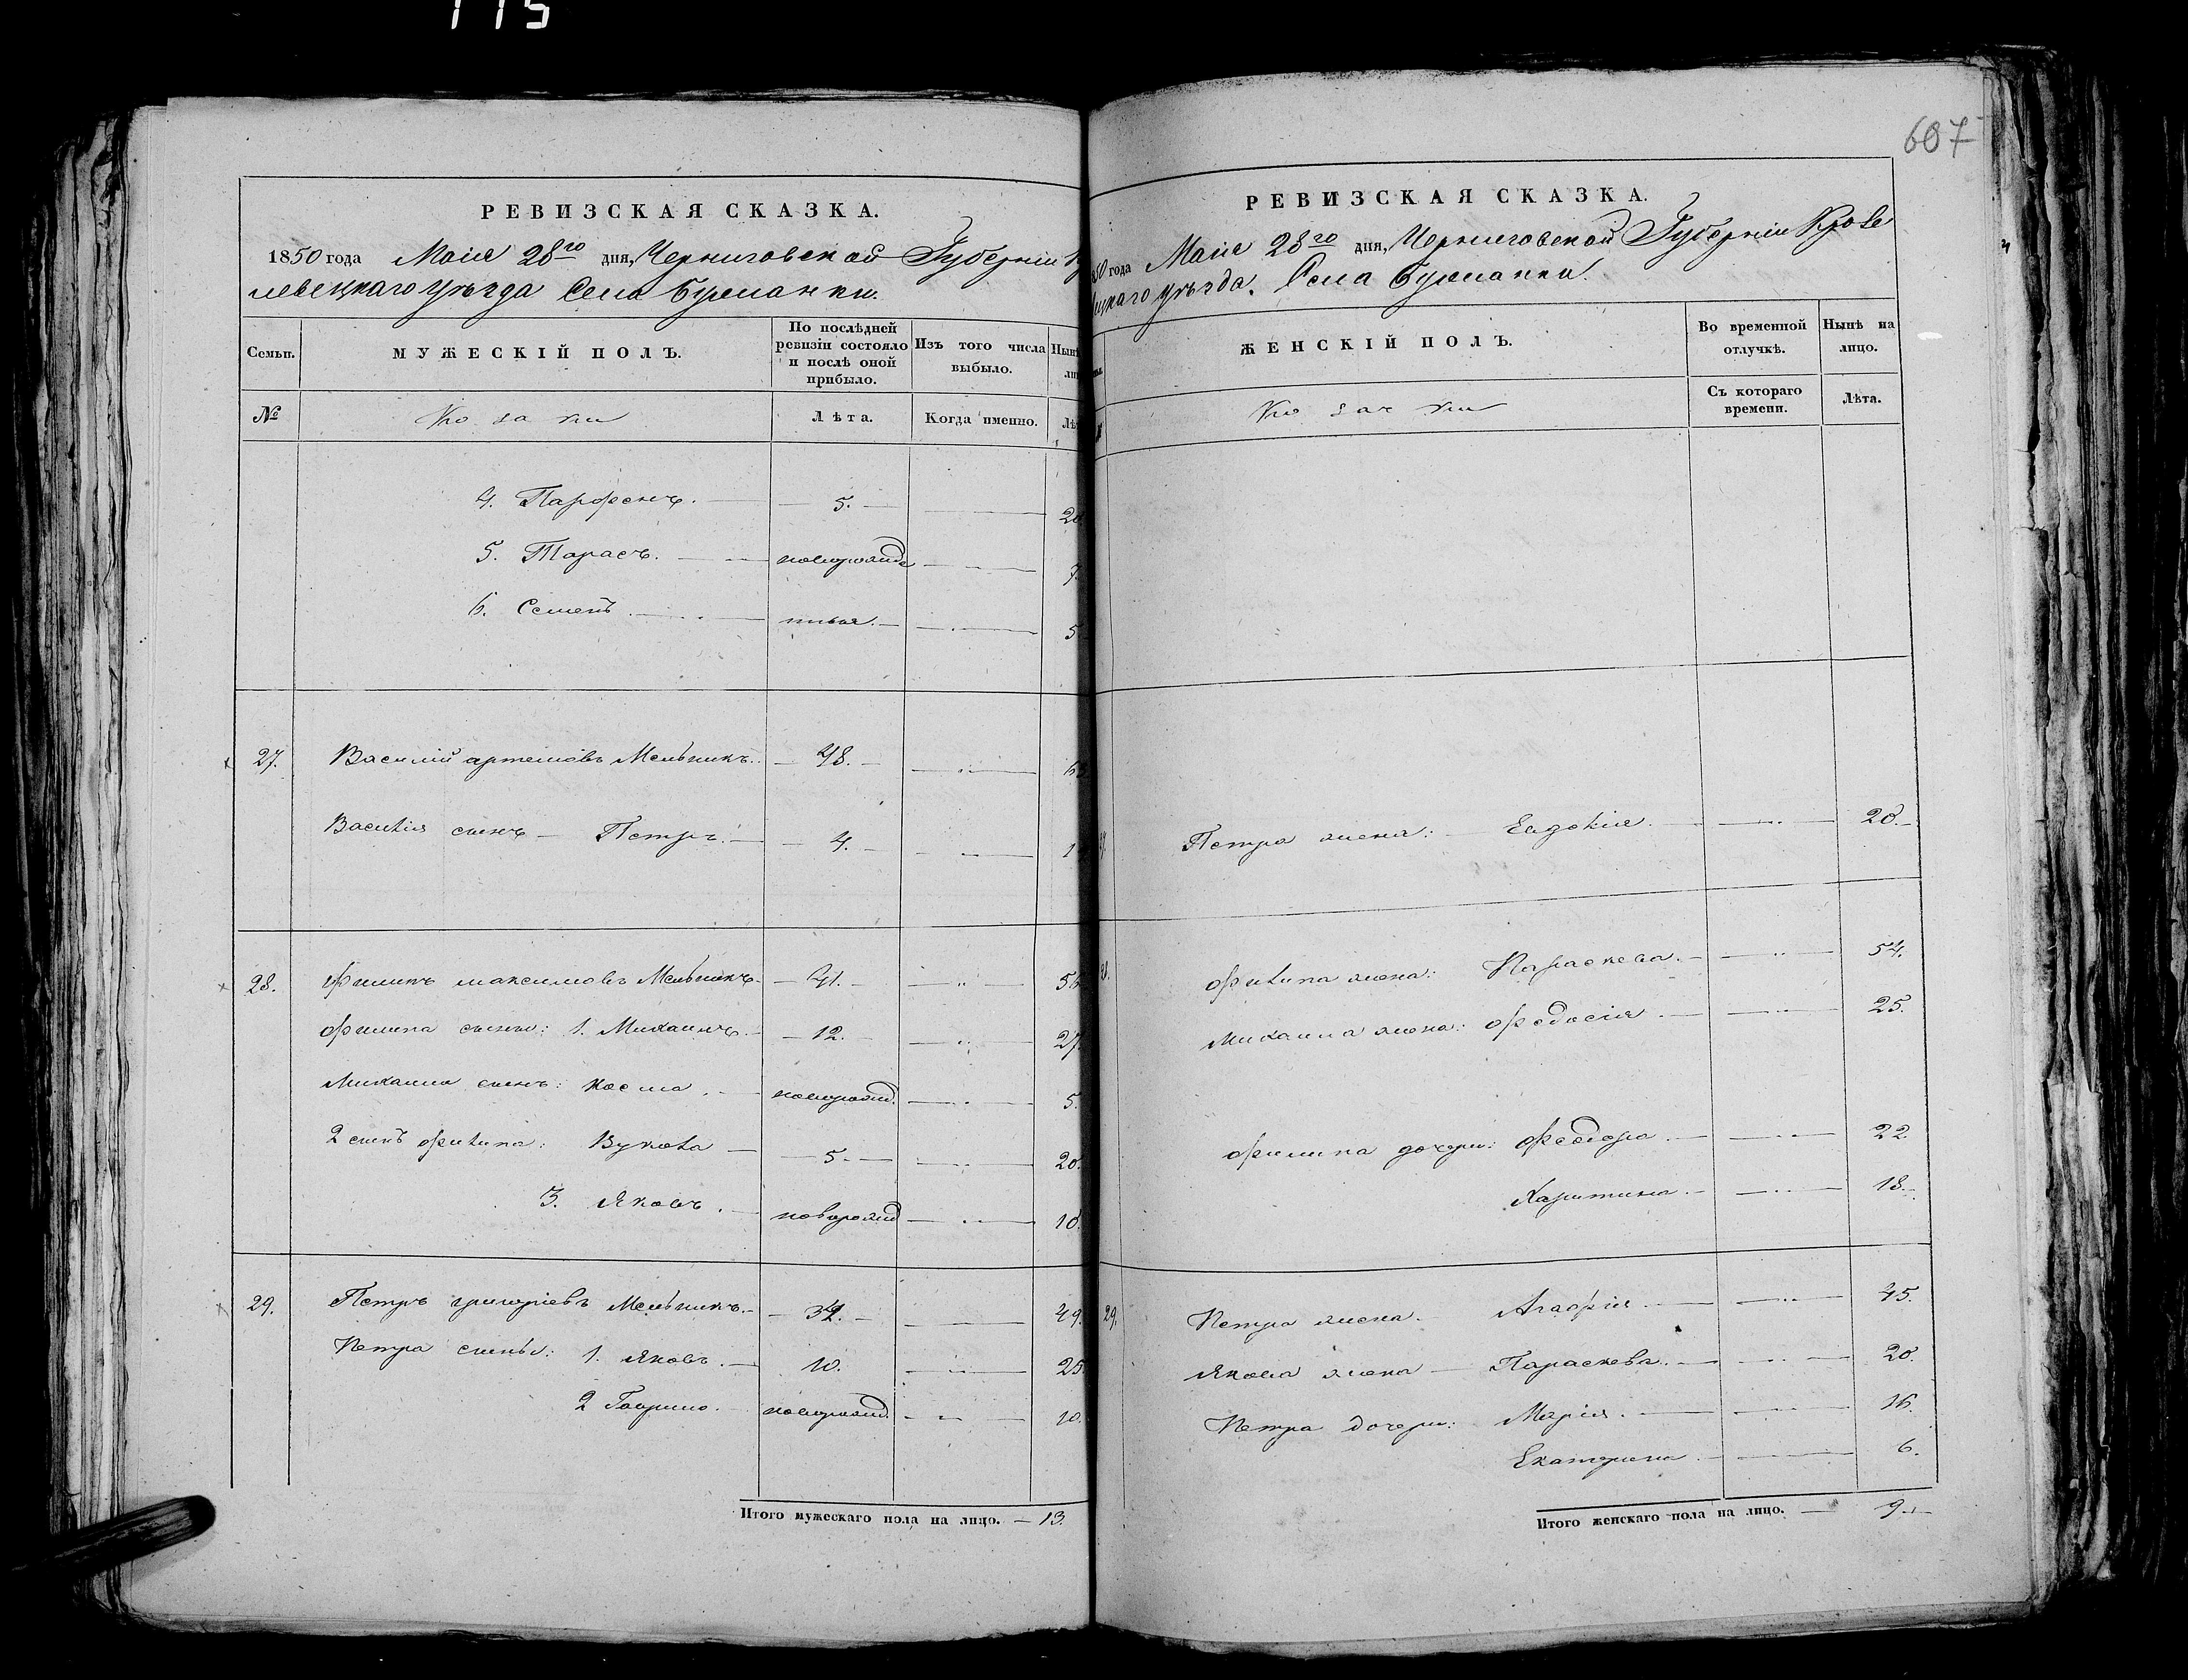 115
607
РЕВИЗСКАЯ СКАЗКА.
1850 года Маія 28го дня, Черниговской Губерніи К
левецкаго уѣзда Села Бужанки.
Семьи.
МУЖЕСКІЙ ПОЛЪ.
По послѣдней ревизіи состояло и послѣ оной прибыло.
Изъ того числа выбыло.
№
Козаки
Лѣта.
Когда именно.
4. Парфенъ. 5. 20
5. Тарасъ. новорожде 7.
6. Семенъ. тоже. 5
27. Василій артемовъ Мельникъ. 48. 63
Василія сынъ Петръ. 4. 1
28. Филипъ максимовъ Мельникъ. 41. 56
Филипа сыны: 1. Михаилъ. 12. 27
Михаила сынъ: Косма. новорожд. 5.
2 сынъ Филипа: Вукола 5. 20.
3. Яковъ. новорожд 10.
29. Петръ григоріевъ Мельникъ. 34. 49.
Петра сыны: 1. Яковъ. 10. 25
2 Гаврило. новорожд. 10.
Итого мужескаго пола на лицо. 13.
РЕВИЗСКАЯ СКАЗКА.
50 года Маія 28го дня, Черниговской Губерніи Кроле
ецкаго уѣзда. Села Бужанки.
ЖЕНСКІЙ ПОЛЪ.
Во временной отлучкѣ.
Нынѣ на лицо.
Козачки
Съ котораго времени.
Лѣта.
Петра жена: Евдокія. 20.
28. Филипа жена: Параскева. 54.
Михаила жена: Федосія. 25.
Филипа дочери: Феодора. 22.
Харитина. 18.
29. Петра жена. Агафія. 45.
Якова жена Параскева. 20.
Петра дочери: Марія. 16.
Екатерина. 6.
Итого женскаго пола на лицо. 9.